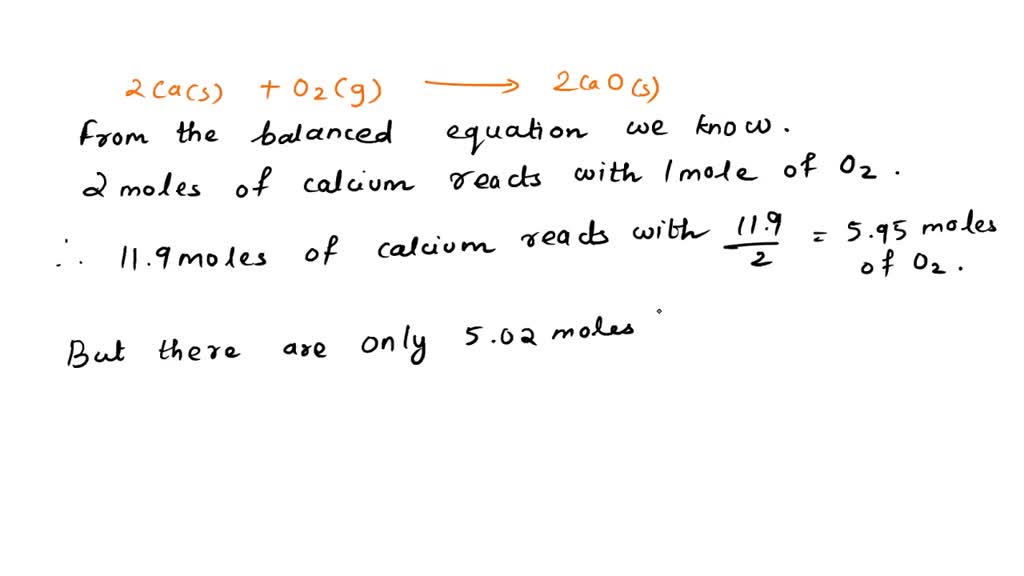 2Ca(s) + O2(g) ⟶ 2CaO(s)
From the balanced equation we know.
2 moles of calcium reacts with 1 mole of O2.
∴ 11.9 moles of calcium reacts with 11.9/2 = 5.95 moles of O2.
But there are only 5.02 moles